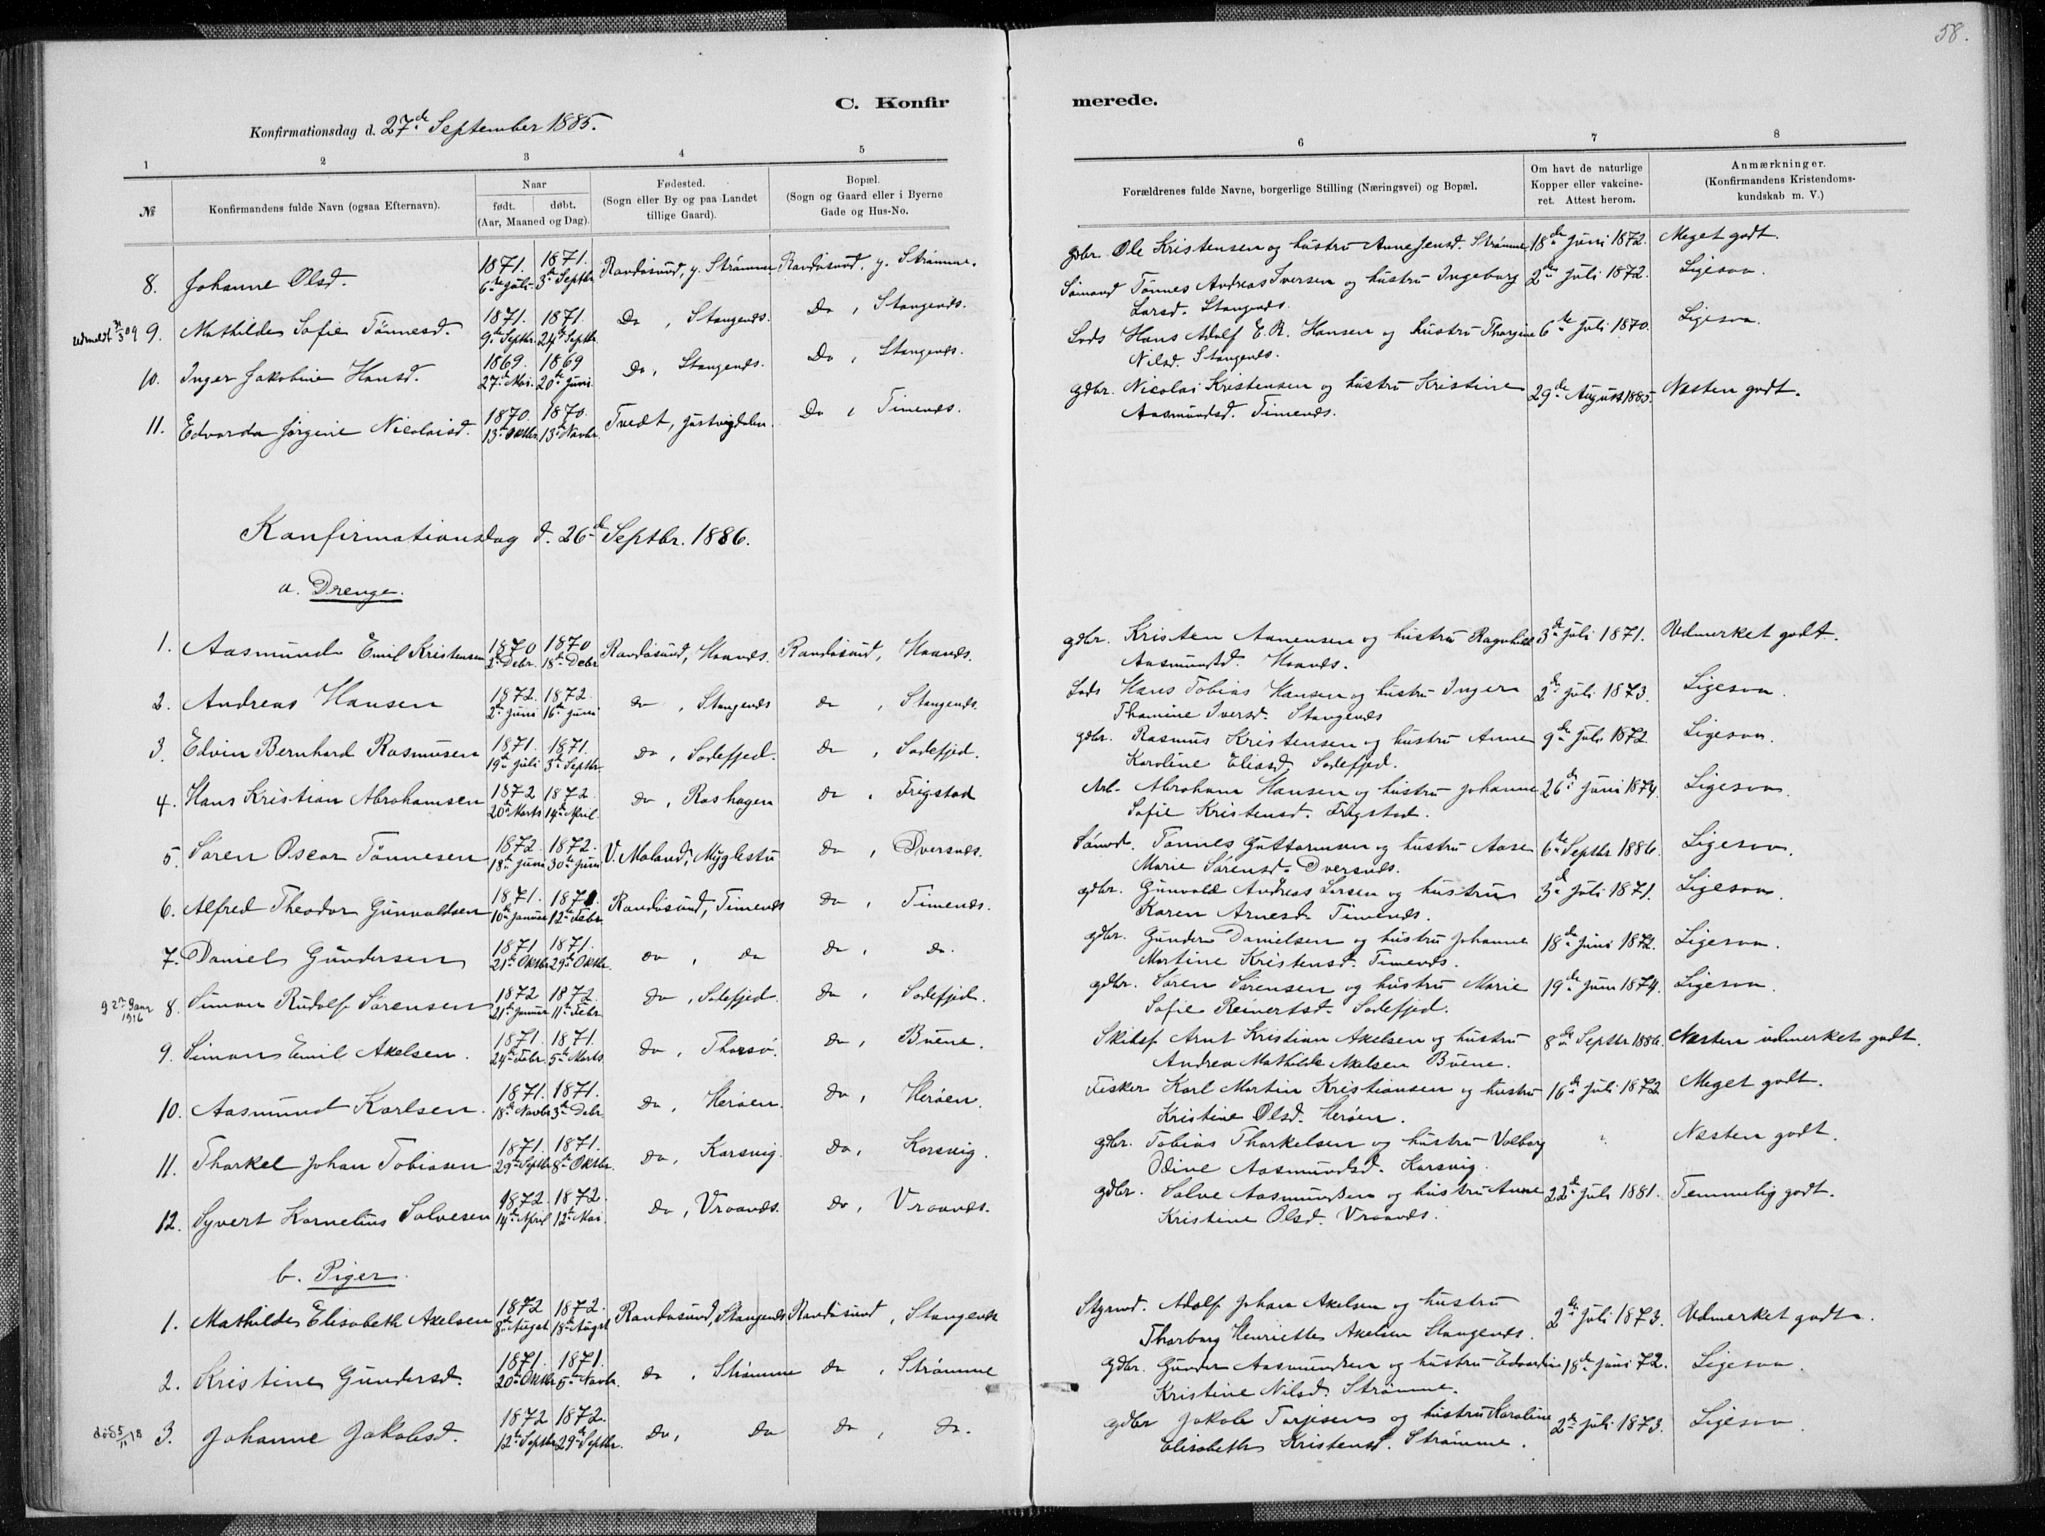 58.
C. Konfirmerede.
Konfirmationsdag d. 27de September 1885.
1 2 3 4 5 6 7 8
№
Konfirmandens fulde Navn (ogsaa Efternavn).
Naar
født. døbt.
(Aar, Maaned og Dag).
Fødested.
(Sogn eller By og paa Landet
tillige Gaard).
Bopæl.
(Sogn og Gaard eller i Byerne
Gade og Hus-No.
Forældrenes fulde Navne, borgerlige Stilling (Næringsvei) og Bopæl.
Om havt de naturlige
Kopper eller vakcine-
ret. Attest herom.
Anmærkninger.
(Konfirmandens Kristendoms-
kundskab m. V.)
8. Johanne Olsd. 1871. 6te Juli 1871. 3de Septbr. Randøsund, g. Strømme Randøsund, g. Strømme. gdbr. Ole Kristensen og hustru Anne Jensd. Strømme 18de Juni 1872. Meget godt.
9. Mathilde Sofie Tønnesd. 1871. 9de Septbr. 1871. 24de Septbr. Do, Stangenes. Do, Stangenes. Sømand Tønnes Andreas Iversen og hustru Ingeborg 2den Juli 1872. Ligesaa.
Larsd. Stangenes.
10. Inger Jakobine Hansd. 1869. 27de Mai. 1869 20de Juni Do, Stangenes. Do, Stangenes. Lods Hans Adolf E. R. Hansen og hustru Thorgine 6te Juli 1870. Ligesaa.
Nilsd. Stangenes.
11. Edvarda Jørgine Nicolaisd. 1870. 13de Oktbr. 1870. 13de Novbr. Tvedt, Justvigdalen. Do, Timenes. gdbr. Nicolai Kristensen og hustru Kristine 29de August 1885. Næsten godt.
Aasmundsd. Timenes.
Konfirmationsdag d. 26de Septbr. 1886.
a. Drenge.
1. Aasmund Emil Kristensen 1870 2de Debr. 1870 18de Debr Randøsund, Haanes. Randøsund, Haanes. gdbr. Kristen Aanensen og hustru Ragnhild 3de Juli 1871. Udmerket godt.
Aasmundsd. Haanes.
2. Andreas Hansen 1872. 2de Juni 1872. 16de Juni do, Stangenes do, Stangenes. Lods Hans Tobias Hansen og hustru Inger 2de Juli 1873. Ligesaa.
Thomine Iversd. Stangenes
3. Edvin Bernhard Rasmusen 1871. 19de Juli 1871. 3de Septbr. do, Sodefjed. do, Sodefjed. gdbr. Rasmus Kristensen og hustru Anne 9de Juli 1872. Ligesaa.
Karoline Eliasd. Sodefjed.
4. Hans Kristian Abrahamsen 1872 20de Marts 1872. 14de April do, Roshagen do, Frigstad Arb. Abraham Hansen og hustru Johanne 26de Juni 1874. Ligesaa.
Sofie Kristensd. Frigstad.
5. Søren Oscar Tønnesen 1872. 18de Juni 1872. 30de Juni V. Moland, Myglestu do, Dversnes. Sømd. Tønnes Guttormsen og hustru Aase 6te Septbr 1886. Ligesaa.
Marie Sørensd. Dversnes.
6. Alfred Theodor Gunvaldsen 1871. 10de Januar 1871. 12te Febr. Randøsund, Timenes do, Timenes. gdbr. Gunvald Andreas Larsen og hustru 3de Juli 1871. Ligesaa.
Karen Arnesd. Timenes.
7. Daniel Gundersen 1871 21de Oktbr 1871. 29de Oktbr. do, do do, do. gdbr. Gunder Danielsen og hustru Johanne 18de Juni 1872. Ligesaa.
Martine Kristensd. Timenes.
8. Simon Rudolf Sørensen 1872 21de Januar 1872. 11te Febr. do, Sodefjed. do, Sodefjed. gdbr. Søren Sørensen og hustru Marie 19de Juni 1874. Ligesaa.
1916
Sofie Reinertsd. Sodefjed.
9. Simon Emil Axelsen. 1871. 24de Febr. 1871. 5te Marts do, Thorsø. do, Buene. Skibsf Arnt Kristian Axelsen og hustru 8de Septbr 1886. Næsten udmerket godt.
Andrea Mathilde Axelsen Buene.
10. Aasmund Karlsen. 1871. 18de Novbr 1871. 3de Debr do, Herøen. do, Herøen. Fisker Karl Martin Kristiansen og hustru 16de Juli 1872 Meget godt.
Kristine Olsd. Herøen.
11. Thorkel Johan Tobiasen 1871. 29de Septbr 1871. 8de Oktbr. do, Korsvig. do, Korsvig. gdbr. Tobias Thorkelsen og hustru Valborg " Næsten godt.
Odine Aasmundsd. Korsvig.
12. Syvert Kornelius Salvesen 1872. 14de April 1872. 12te Mai. do, Vraanes. do, Vraanes. gdbr. Salve Aasmundsen og hustru Anne 22de Juli 1881. Temmelig godt.
Kristine Olsd. Vraanes.
b. Piger.
1. Mathilde Elisabeth Axelsen 1872 8de August 1872. 18de August Randøsund, Stangenes Randøsund, Stangenes Styrmd. Adolf Johan Axelsen og hustru 2de Juli 1873. Udmerket godt.
Thorborg Henriette Axelsen Stangenes.
2. Kristine Gundersd. 1871. 20de Oktbr 1871. 5te Novbr. do, Strømme do, Strømme gdbr. Gunder Aasmundsen og hustru Edvardine 18de Juni 72. Ligesaa.
Kristine Nilsd. Strømme.
3. Johanne Jakobsd. 1872 12te Septbr 1872. 29de Septbr. do, do do, do. gdbr Jakob Torjesen og hustru Karoline 2de Juli 1873. Ligesaa.
Elisabeth Kristensd. Strømme.